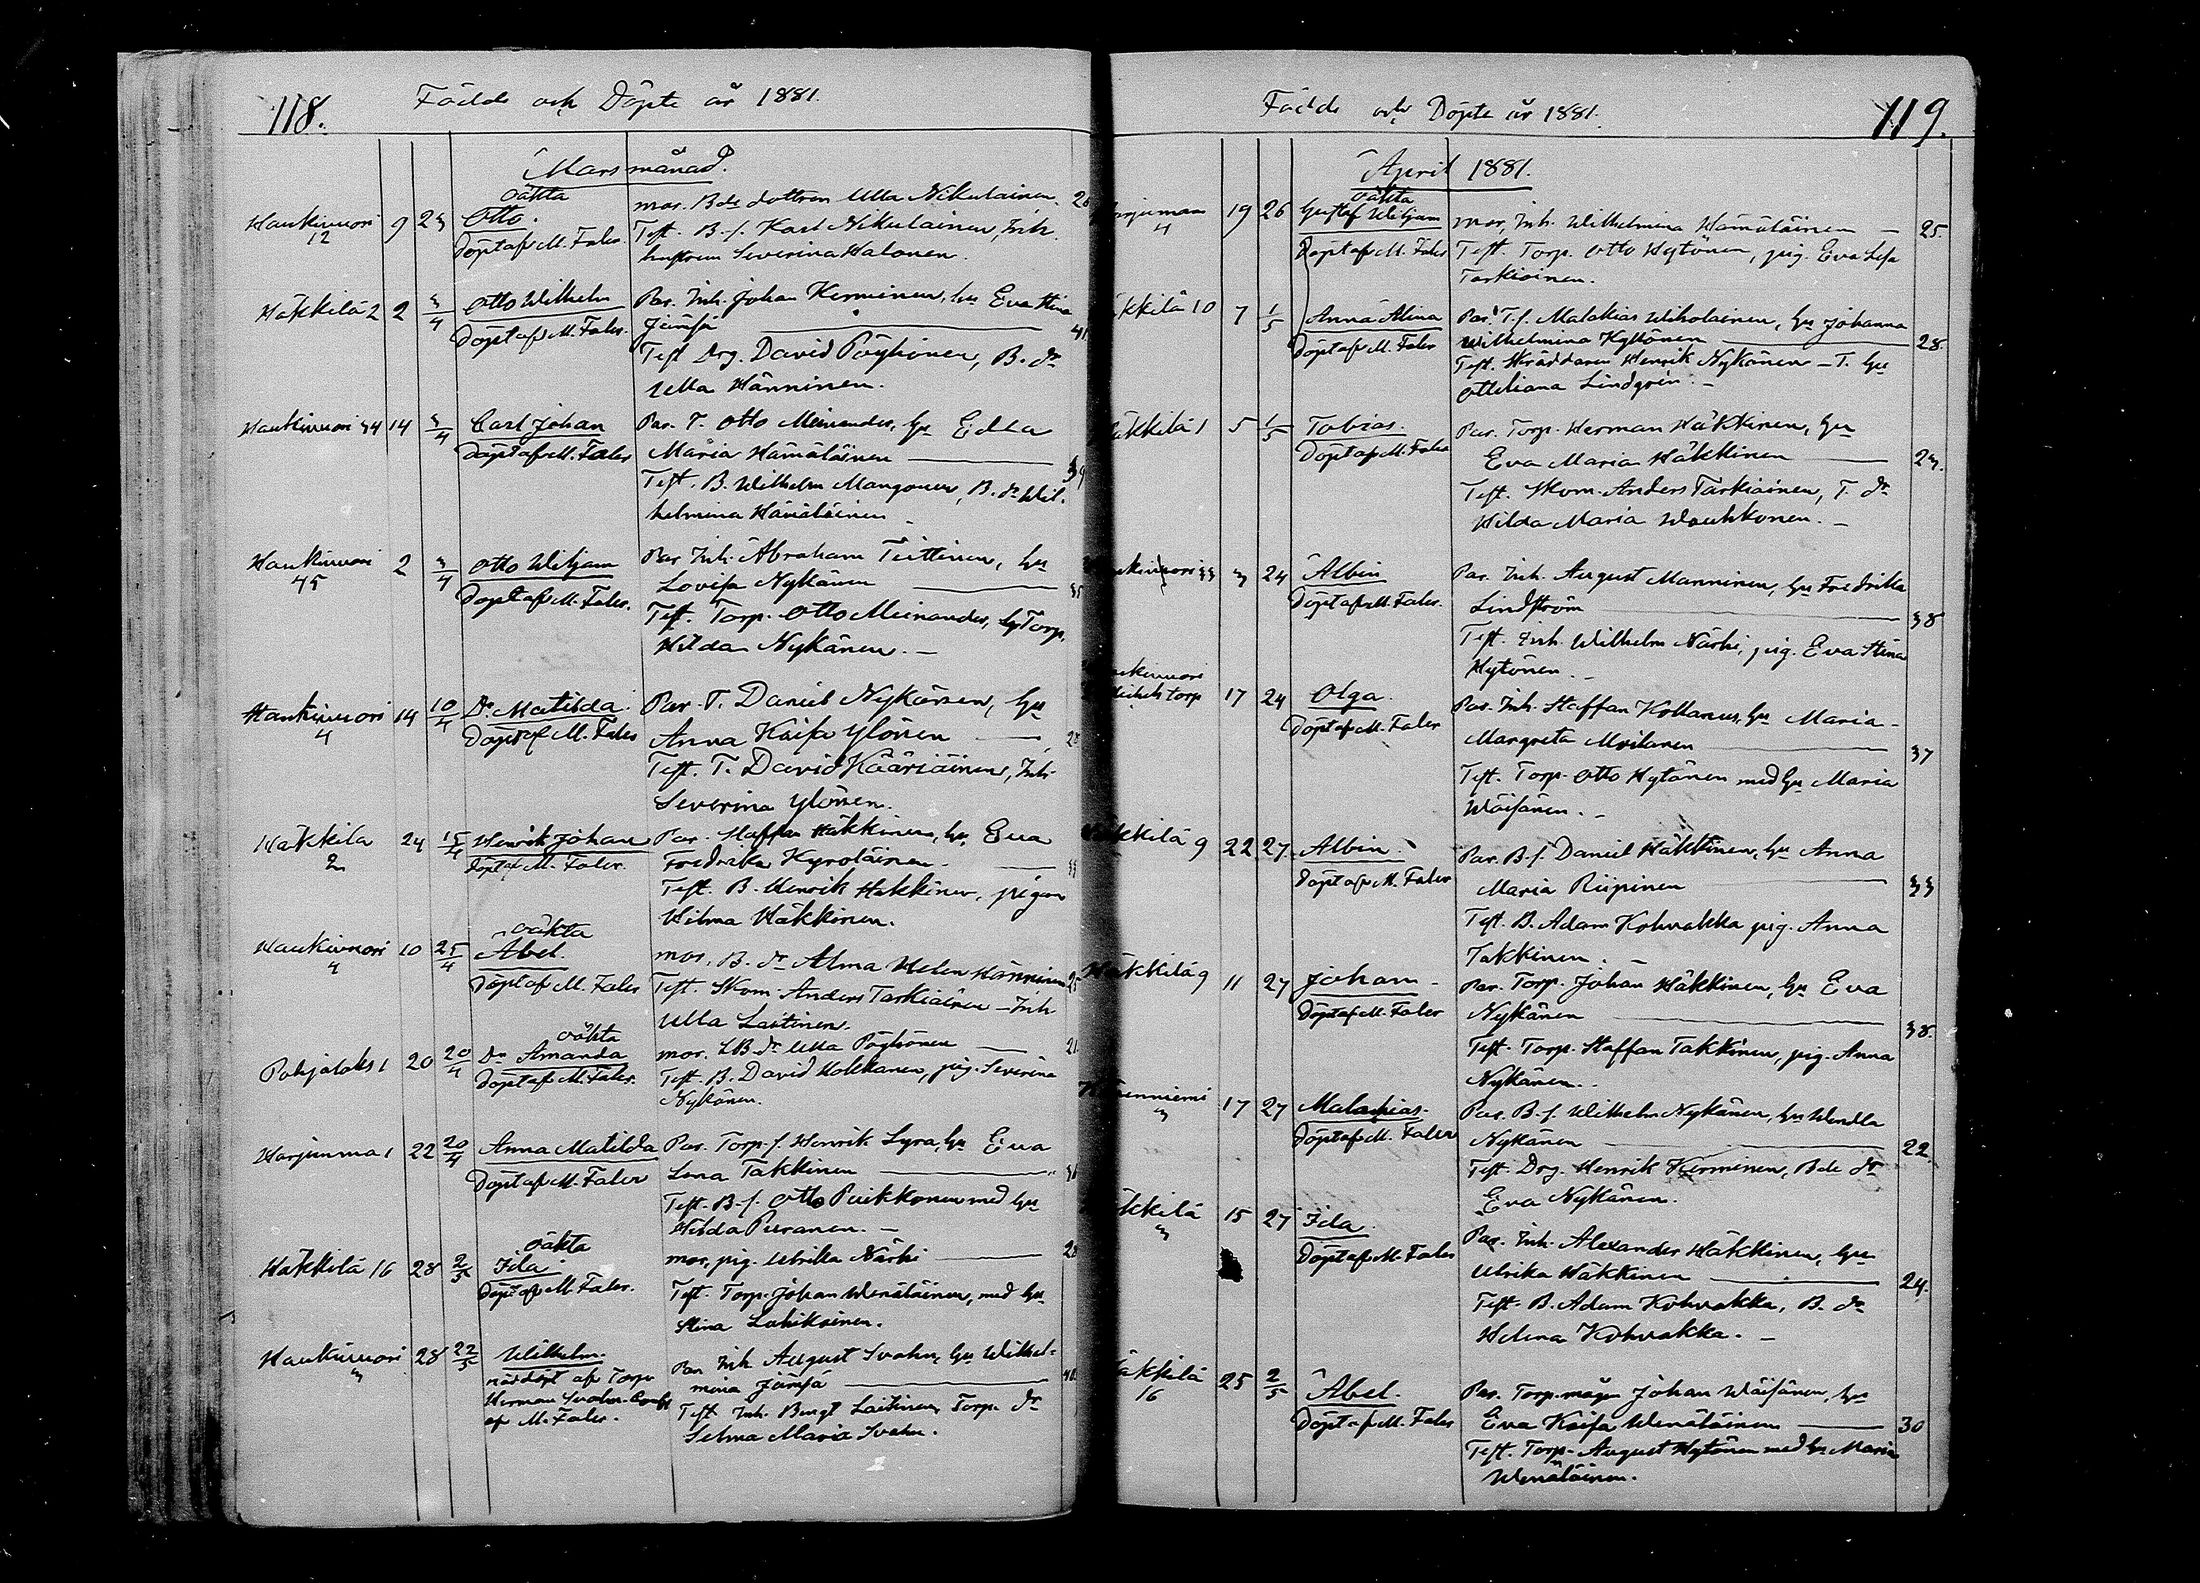 118.
Födde och Döpte år 1881.
Mars månad.
Haukivuori 12 9 23 oäkta
Otto.
Döpt af M. Faler.
mor. Bde dottren Ulla Nikulainen. 26
Test. B. s. Karl Nikulainen, Inh.
hustrun Severina Halonen.
Häkkilä 2 2 3/4 Otto Wilhelm
Döpt af M. Faler.
Par. Inh. Johan Kerminen, hu Eva Stina
Jämsä 41
Test Drg. David Pöyhönen, B. dr
Ulla Hänninen.
Haukivuori 34 14 3/4 Carl Johan
Döpt af M. Faler
Par. T. Otto Meinander, hu Edla
Maria Hämäläinen 39
Test. B. Wilhelm Mangonen, B. dr Wil-
helmina Hämäläinen
Haukivuori 45 2 3/4 Otto Wiljam
Döpt af M. Faler.
Par Inh. Abraham Tiittinen, hu
Lovisa Nykänen 35
Test. Torp. Otto Meinander, hu Torp.
Hilda Nykänen. –
Haukivuori 4 14 10/4 Dr. Matilda.
Döpt af M. Faler
Par. T. Daniel Nykänen, hu
Anna Kaisa Ylönen 28
Test. T. David Kääriäinen, Inh.
Severina Ylönen.
Häkkilä 2 24 15/4 Henrik Johan
Döpt af M. Faler.
Par. Staffan Häkkinen, hu Eva
Fredrika Kyroläinen.
Test. B. Henrik Häkkinen, pigan
Hilma Häkkinen.
Haukivuori 4 10 25/4 oäkta
Abel.
Döpt af M. Faler
mor, B. dr Alma Helen Hänninen 25
Test. Skom. Anders Tarkiainen – Inh
Ulla Laitinen.
Pohjalaks 1 20 20/4 oäkta
Dr Amanda
Döpt af M. Faler.
mor. LB dr Ulla Pöyhönen 21
Test. B. David Holkkanen, pig. Severina
Nykänen.
Harjunmaa 1 22 20/4 Anna Matilda
Döpt af M. Faler
Par. Torp. s. Henrik Lyra, hu Eva
Lena Takkinen
Test. B. s. Otto Puikkonen med hu
Hilda Piiranen. –
Häkkilä 16 28 2/5 oäkta
Iida
Döpt af M. Faler.
mor, pig. Ulrika Närhi 28
Test. Torp. Johan Wenäläinen, med hu
Stina Lahikainen.
Haukivuori 3 28 22/5 Wilhelm.
nöddöpt af Torp.
Herman Svahn. Conf.
af M. Faler.
Par Inh. August Svahn, hu Wilhel-
mina Jämsä 40
Test Inh. Bengt Laitinen, Torp. dr
Selma Maria Svahn.
119.
Födde och Döpte år 1881.
April 1881.
4 19 26 oäkta
Gustaf Wiljam
Döpt af M. Faler
mor, Inh. Wilhelmina Hämäläinen – 25.
Test. Torp. Otto Hytönen, pig. Eva Lisa
Tarkiainen.
kkilä 10 7 1/5 Anna Alina
Döpt af M. Faler
Par. T. s. Malakias Wiholainen, hu Johanna
Wilhelmina Kyllönen 28.
Test. Skräddaren Henrik Nykänen – T. hu
Otteliana Lindqvin. –
äkkilä 1 5 1/5 Tobias.
Döpt af M. Faler
Par. Torp. Herman Häkkinen, hu
Eva Maria Häkkinen 23.
Test. Skom. Anders Tarkiainen, T. dr
Hilda Maria Wauhkonen. –
ukivuori 33 3 24 Albin
Döpt af M. Faler.
Par. Inh. August Manninen, hu Fredrika
Lindström 38
Test. Inh. Wilhelm Närhi, pig. Eva Stina
Hytönen. –
ukivuori torp 17 24 Olga.
Döpt af M. Faler
Par. Inh. Staffan Kollanus, hu Maria
Margreta Moilanen 37
Test. Torp. Otto Hytönen med hu Maria
Wäisänen. –
äkkilä 9 22 27 Albin
Döpt af M. Faler
Par. B. s. Daniel Häkkinen, hu Anna
Maria Riipinen 33
Test. B. Adam Kohvakka pig. Anna
Takkinen. –
Häkkilä 9 11 27 Johan
Döpt af M. Faler
Par. Torp. Johan Häkkinen, hu Eva
Nykänen 38.
Test. Torp. Staffan Takkinen, pig. Anna
Nykänen.
enniemi 3 17 27 Malachias.
Döpt af M. Faler
Par. B. s. Wilhelm Nykänen, hu Wendla
Nykänen 22.
Test. Drg. Henrik Kerminen, Bde dr
Eva Nykänen.
kkilä 3 15 27 Iida.
Döpt af M. Faler
Par. Inh. Alexander Häkkinen, hu
Ulrika Häkkinen 24.
Test. B. Adam Kohvakka, B. dr
Helena Kohvakka. –
äkkilä 16 25 2/5 Abel.
Döpt af M. Faler
Par. Torp. måg Johan Wäisänen, hu
Eva Kaisa Wenäläinen 30
Test. Torp. August Hytönen med hu Maria
Wenäläinen.